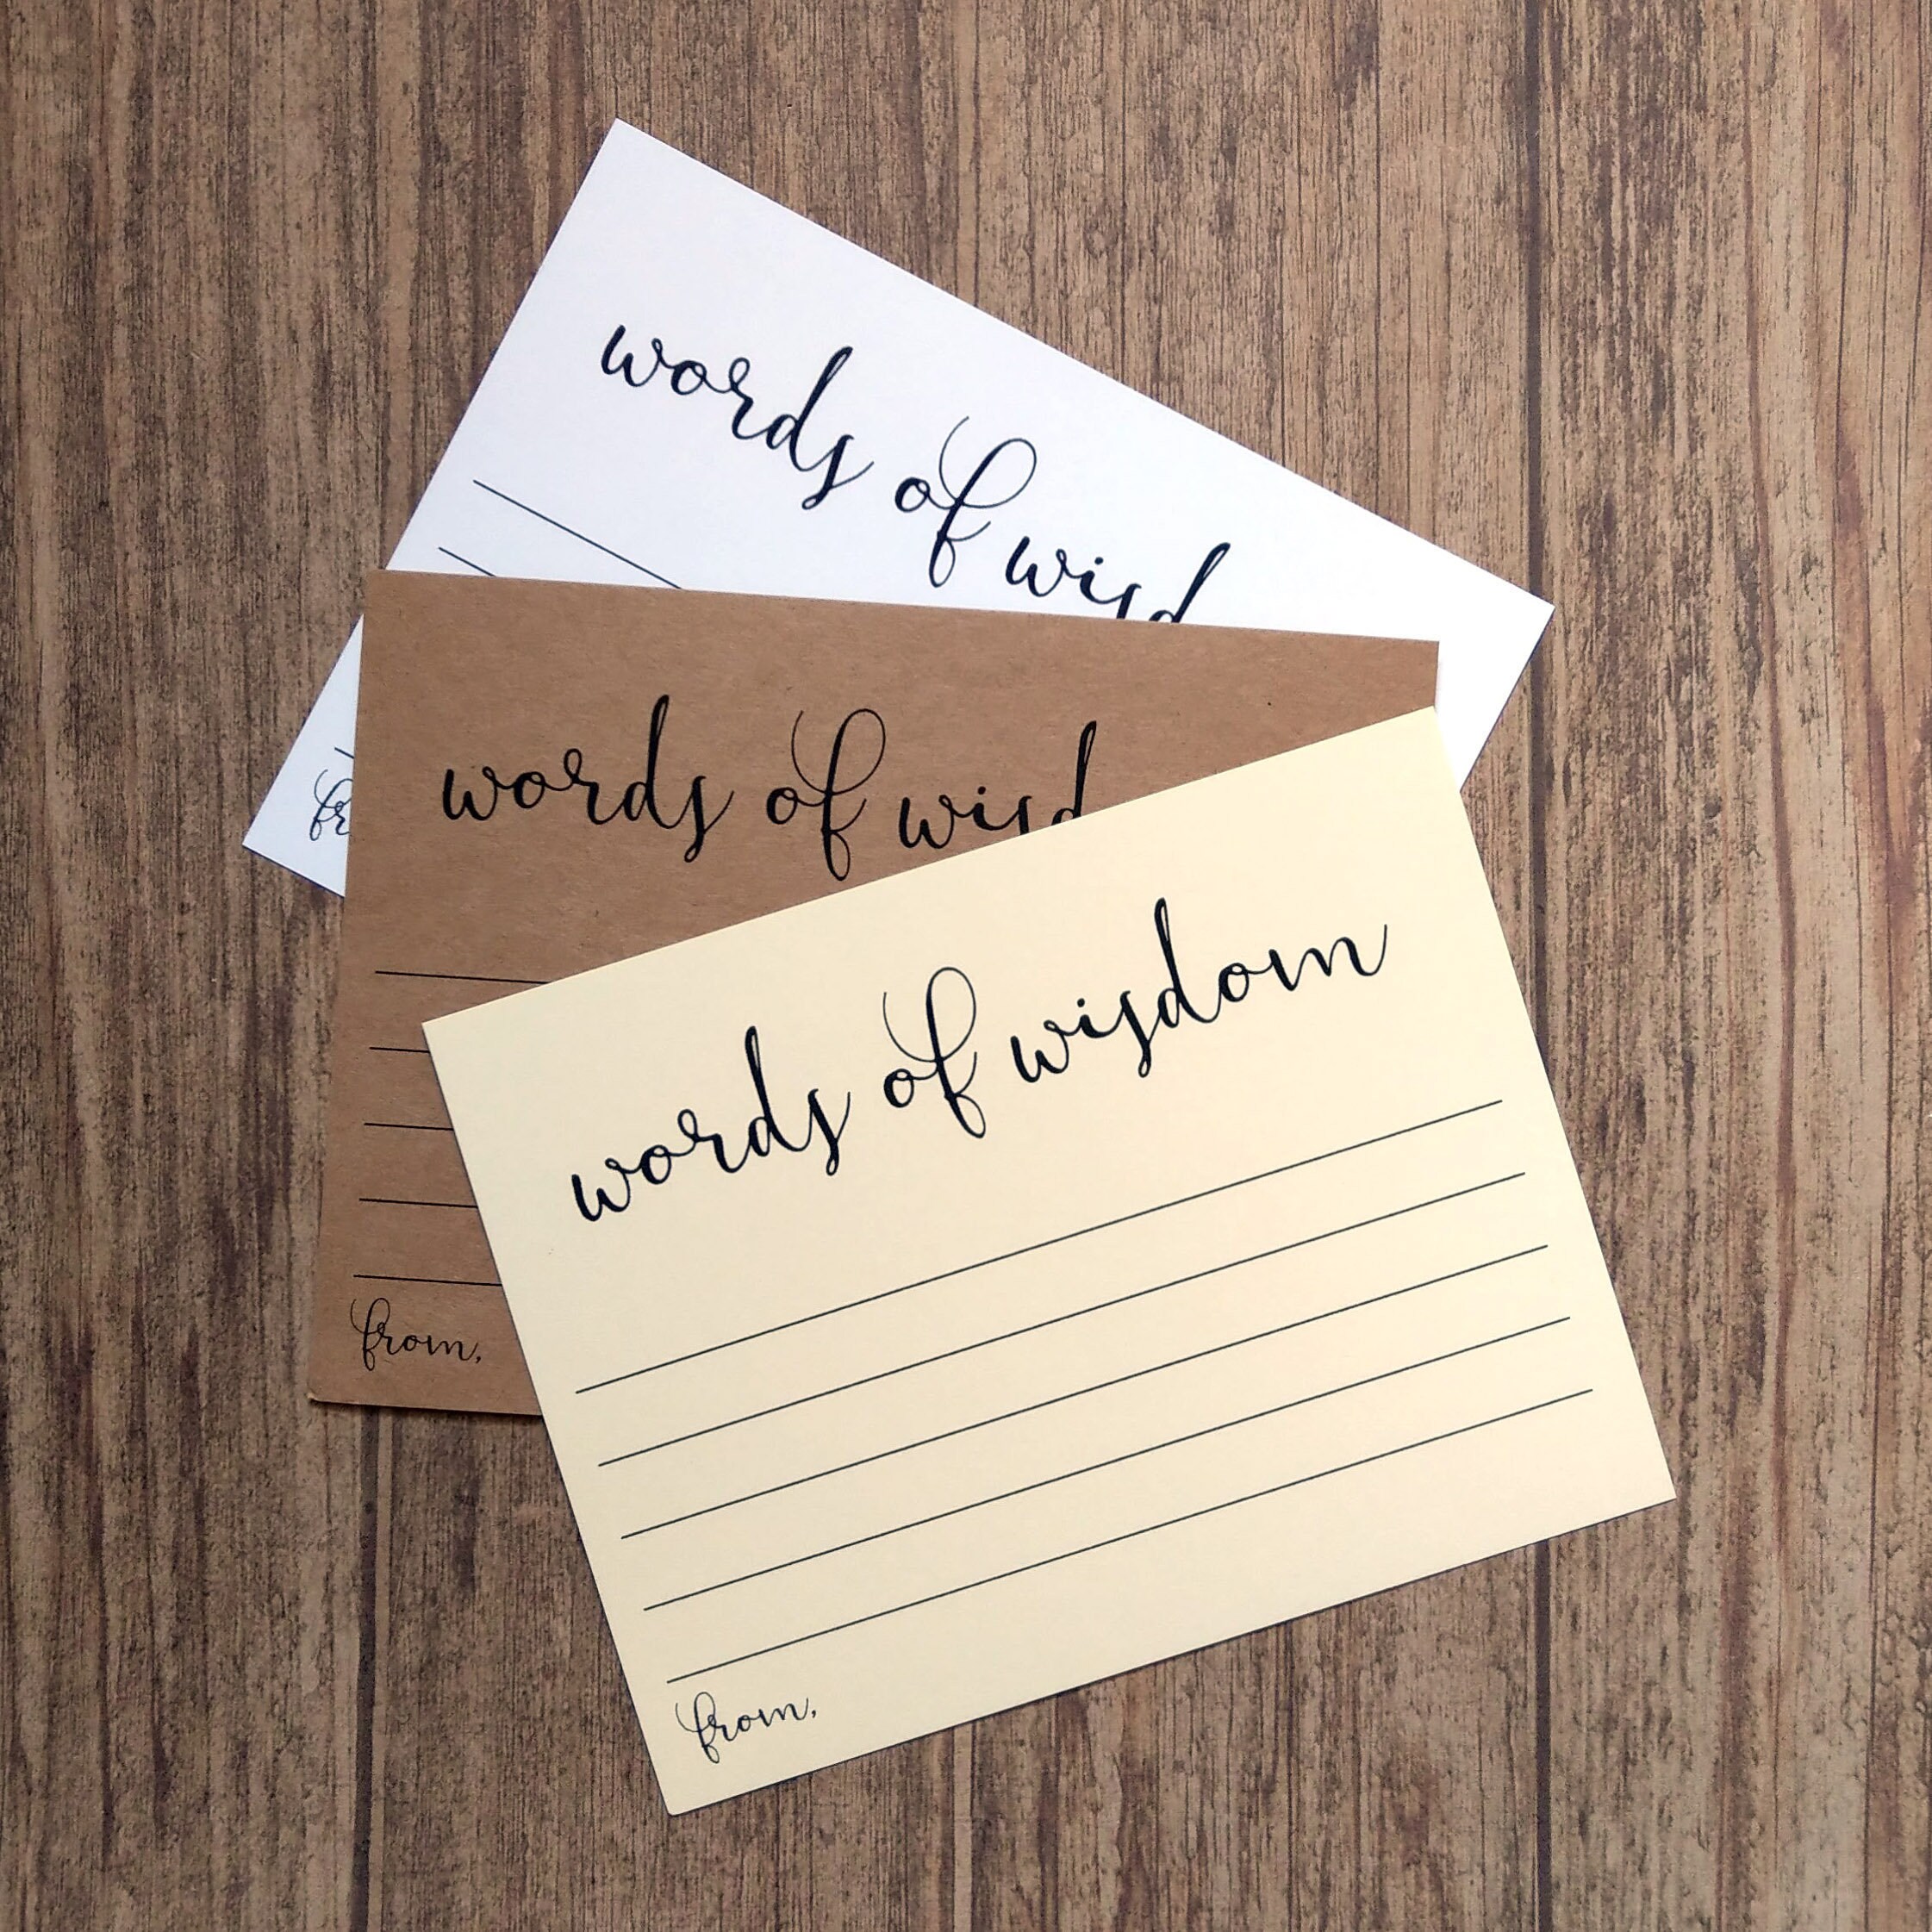 words of wisd
fr
words of wisd
from,
words of wisdom
from,